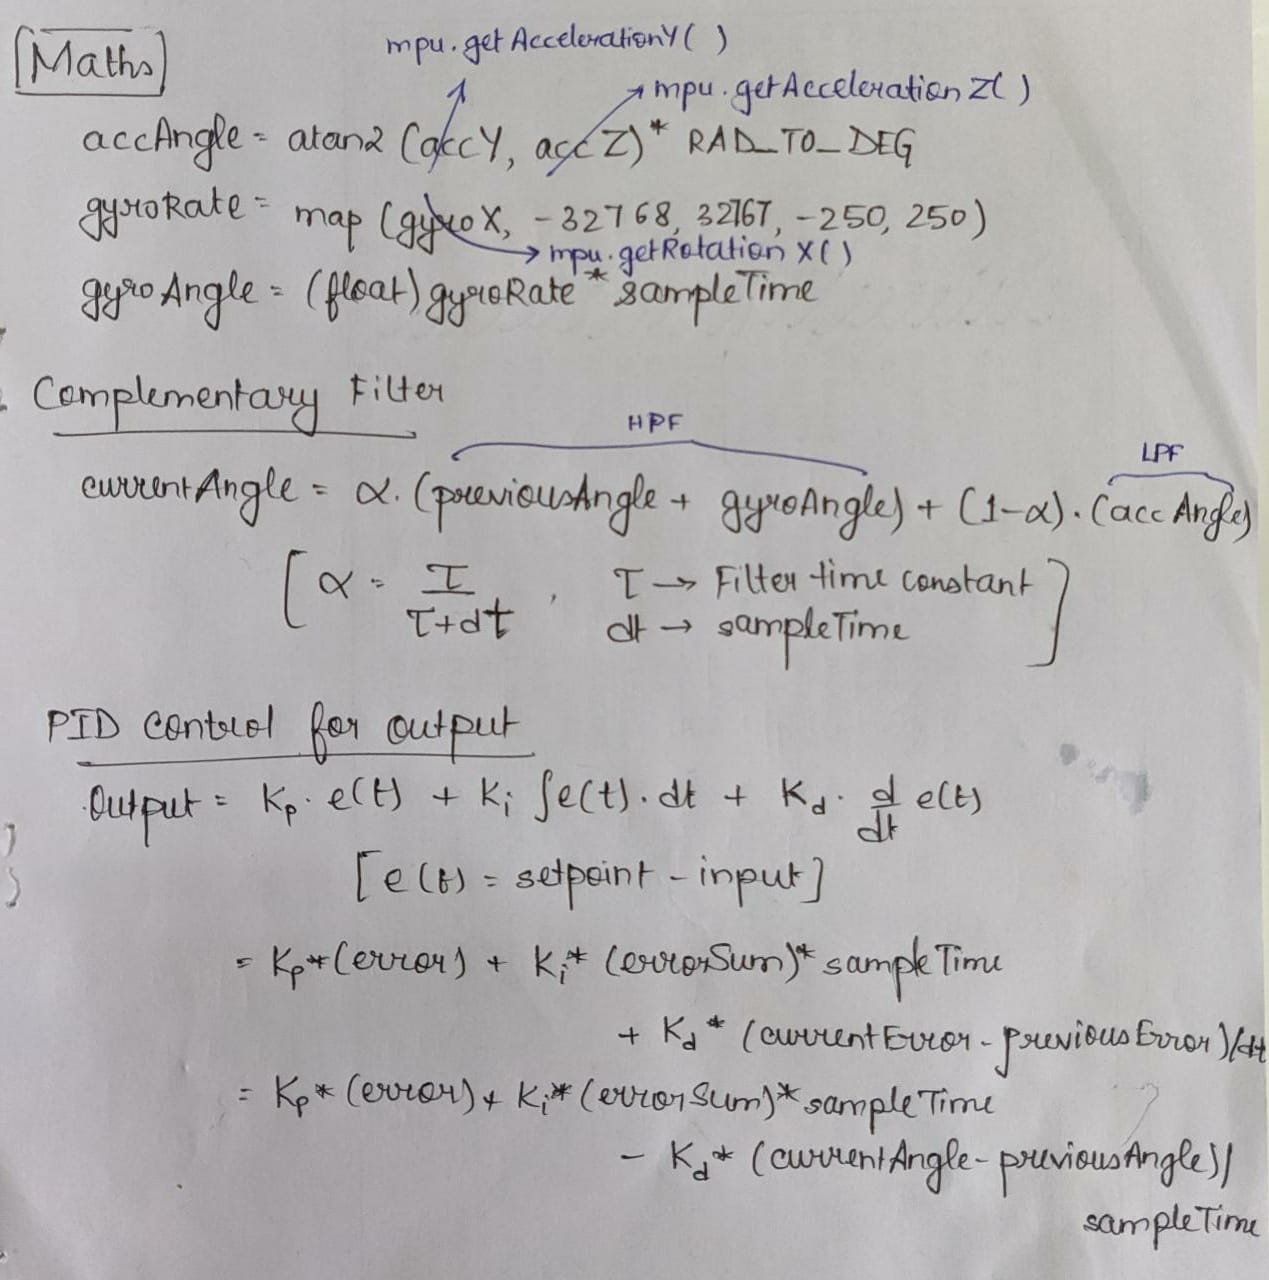 Maths
mpu.getAccelerationY( )
mpu.getAccelerationZ( )
accAngle = atan2 (accY, accZ)* RAD_TO_DEG
gyroRate = map (gyroX, -32768, 32767, -250, 250)
mpu.getRotationX( )
gyroAngle = (float)gyroRate * sampleTime
Complementary Filter
HPF
LPF
currentAngle = α. (previousAngle + gyroAngle) + (1-α). (accAngle)
[ α = τ/(τ+dt) , τ → Filter time constant
dt → sampleTime ]
PID control for output
Output = Kp. e(t) + Ki ∫e(t). dt + Kd. d/dt e(t)
[e(t) = setpoint - input]
= Kp*(error) + Ki* (errorSum)* sampleTime
+ Kd* (currentError - previousError)/dt
= Kp* (error) + Ki* (errorSum)* sampleTime
- Kd* (currentAngle - previousAngle)/
sampleTime